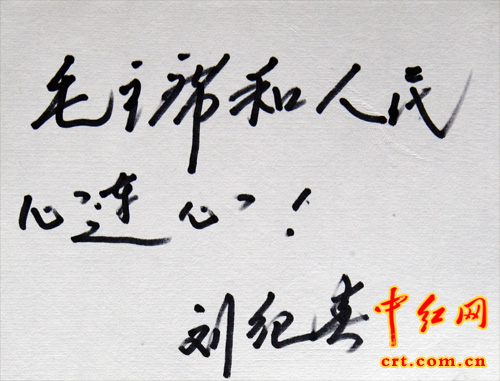 毛主席和人民
心连心！
刘纪春
中红网
crt.com.cn